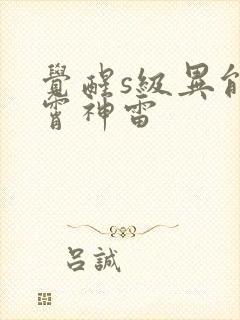 覺醒s級異能
霄神雷
呂誠